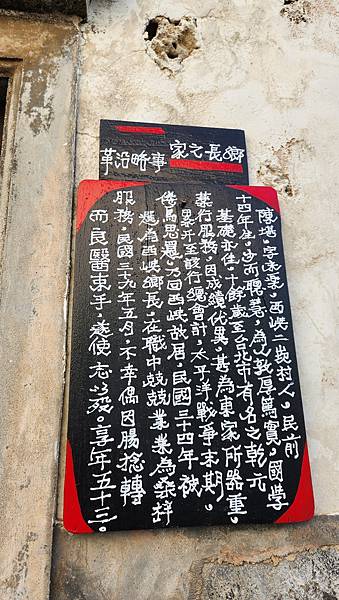 鄉長之家
事略沿革
陳堪,字咏霖,西嶼二崁村人,民前
十四年生,幼而聰慧,為人敦厚篤實,國學
基礎亦佳,十餘歲至台北市有名之乾元
藥行服務,因成績優異,甚為東家所器重,
累升至該行總會計,太平洋戰爭末期,
倦鳥思還,乃回西嶼故居,民國三十四年被
選為西嶼鄉長,在職中兢兢業業為桑梓
服務,民國三九年五月,不幸偶因腸捻轉
而良醫束手,遂使志以歿。享年五十三。